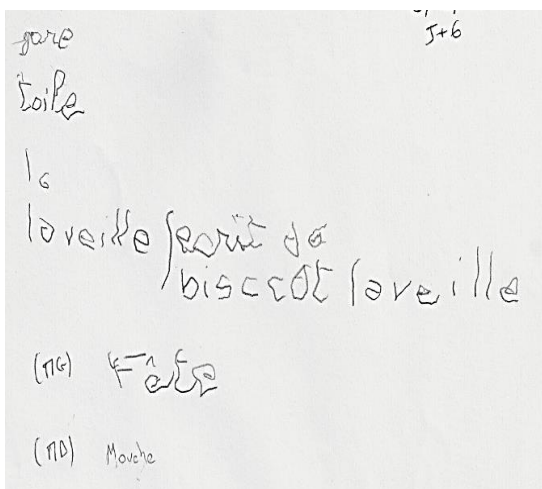 J+6
gare
toile
la
la veille
bisccot la veille
(MG) Fâte
(MD) Mouche